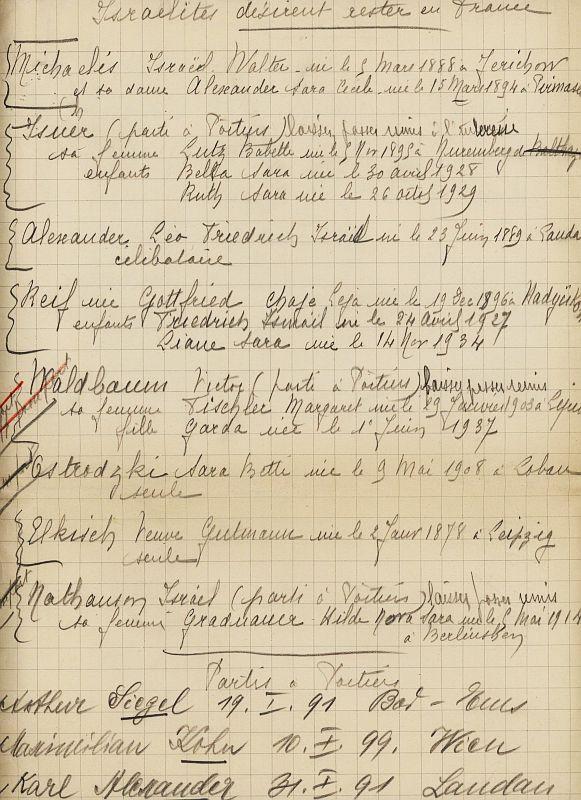 Israelites désirent rester en France
Michaelés Israël Walter né le 5 Mars 1888 à Jerichow
et sa dame Alexander Sara Cécile née le 15 Mars 1894 à Pirmase
Isner (parti à Poitiers) laissez passer remis à l'
sa femme Lutz Babette née le 5 Nov 1895 à Nuremberg
enfants Bella Sara née le 30 avril 1928
Ruth Sara née le 26 1929
Alexander Léo Friedrich Israël né le 23 Juin 1889 à Landau
célibataire
Reif née Gottfried Chaje Leja née le 19 Dec 1896 à
enfants Friedrich Ismaïl né le 24 avril 1927
Liane Sara née le 14 Nov 1934
Waldbaum Victor (parti à Poitiers) laissez passer remis
sa femme Tischler Margaret née le 29 Janvier 1903 à
fille Garda née le 1 Juin 1937
Ostrodzki Sara Betti née le 9 Mai 1908 à Lobau
seule
Elkisch Veuve Gutmann née le 2 Janv 1878 à Leipzig
seule
Nathanson Israël (parti à Poitiers) laissez passer remis
sa femme Hilde Nora Sara née le 5 Mai 1914
à
Partis à Poitiers
Arthur Siegel 19. I. 91 Bad-Ems
Maximilian Kohn 10. X. 99. Wien
Karl Alexander 31. X. 91 Landau